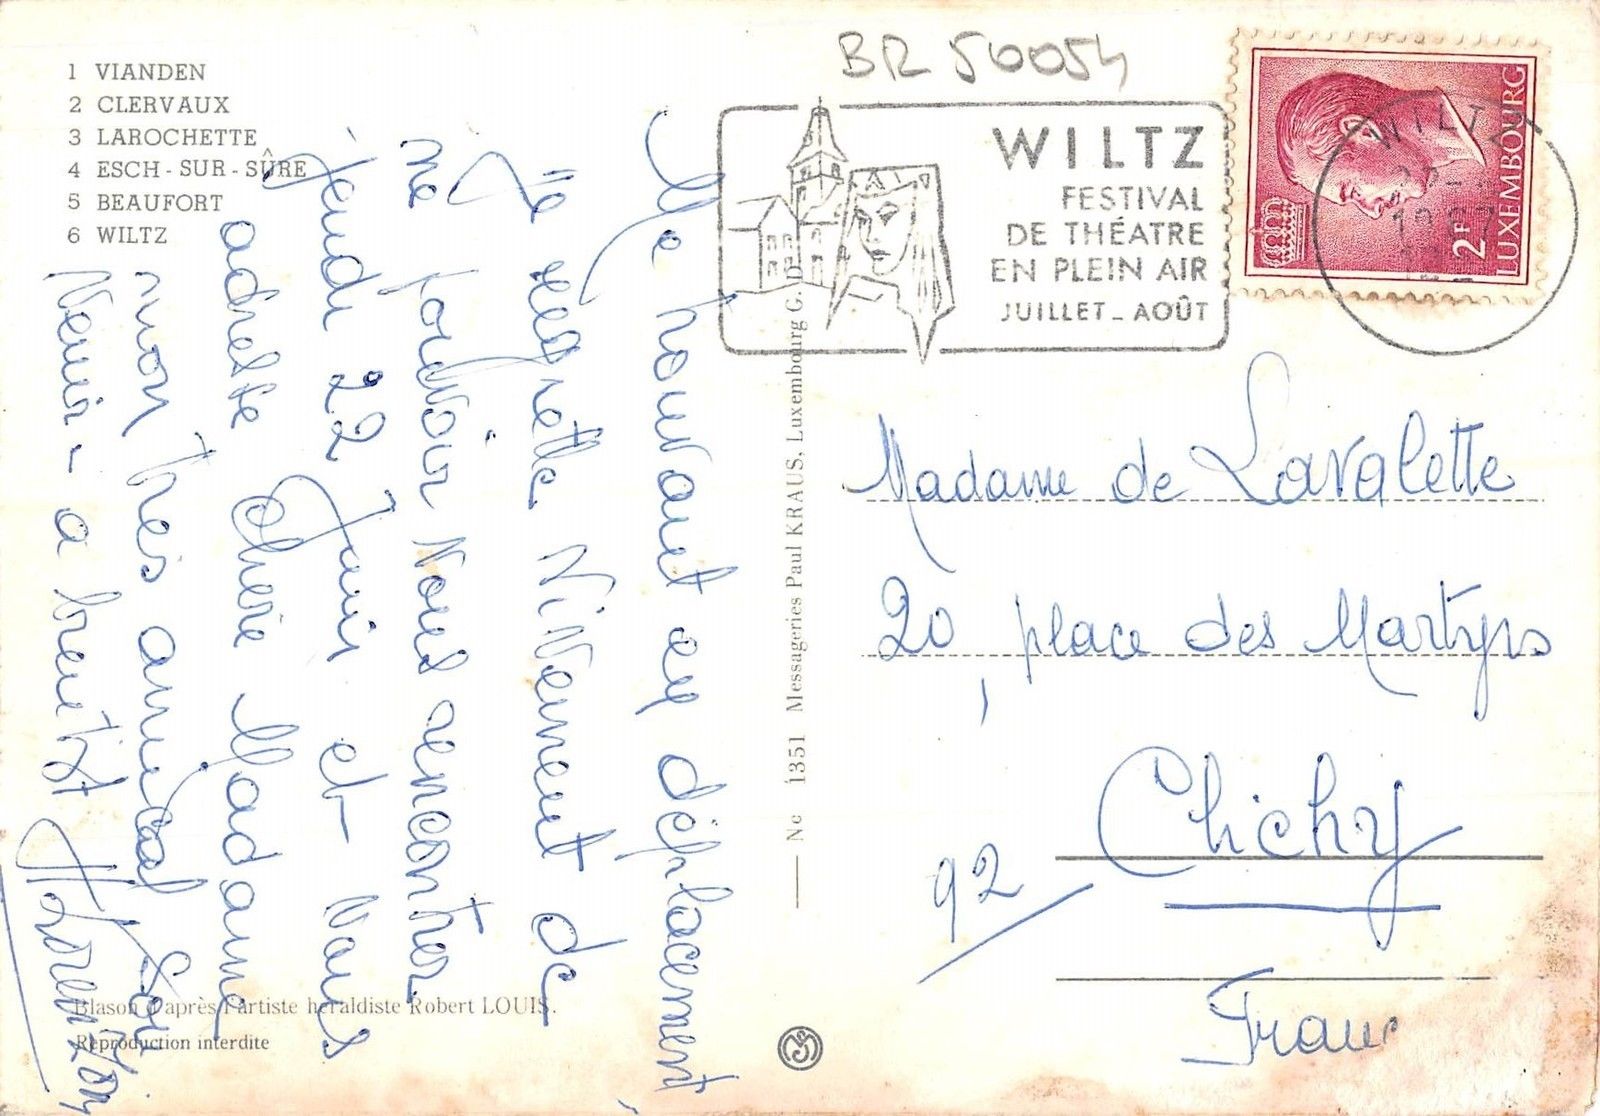 1 VIANDEN
2 CLERVAUX
3 LAROCHETTE
4 ESCH-SUR-SÛRE
5 BEAUFORT
6 WILTZ
BR 50054
WILTZ
FESTIVAL
DE THÉATRE
EN PLEIN AIR
JUILLET - AOÛT
LUXEMBOURG
2F
WILTZ
Me trouvant en déplacement,
Je regrette vivement de
ne pouvoir vous rencontrer
jeudi 22 Juin et vous
adresse Chère Madame
mon très amical Sou
venir - a bientôt
Nº 1351 Messageries Paul KRAUS, Luxembourg G. D.
Madame de Lavalette
20, place des Martyrs
Clichy
92
France
Blason d'après l'artiste héraldiste Robert LOUIS.
Reproduction interdite